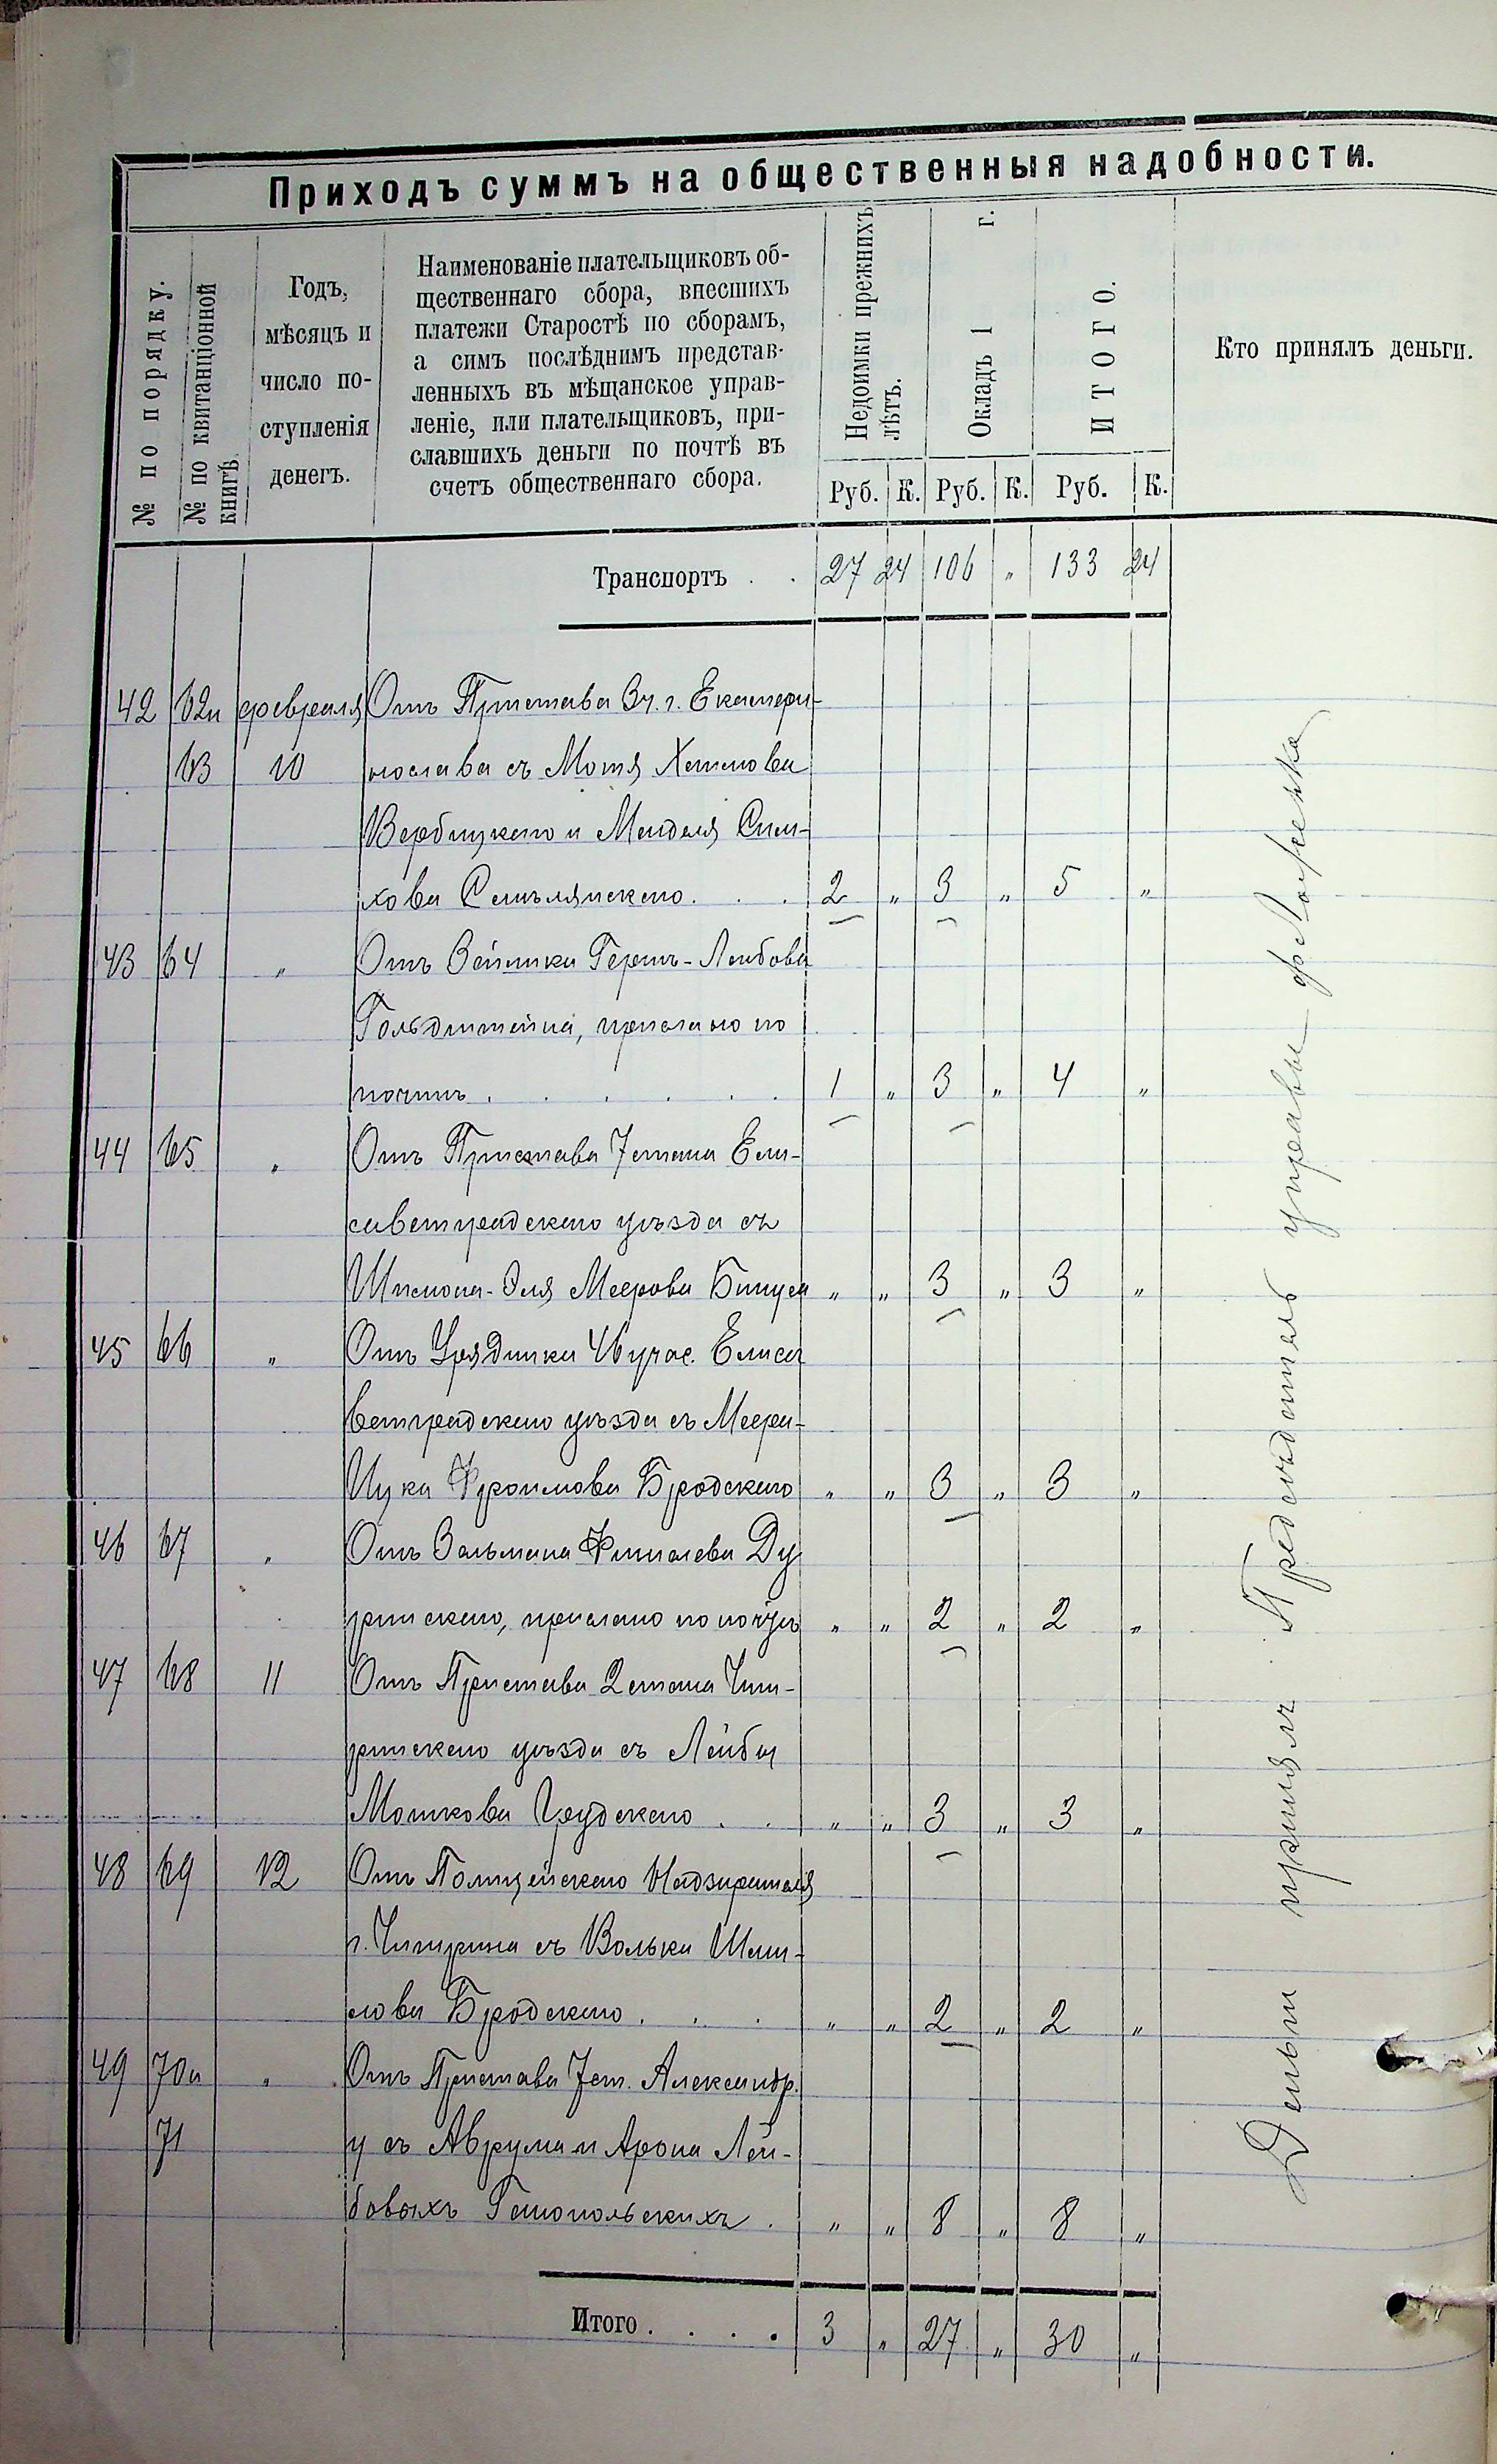 Приходъ суммъ на общественныя надобности.
№ по порядку.
№ по квитанціонной
книгѣ.
Годъ,
мѣсяцъ и
число по-
ступленія
денегъ.
Наименованіе плательщиковъ об-
щественнаго сбора, внесшихъ
платежи Старостѣ по сборамъ,
а симъ послѣднимъ представ-
ленныхъ въ мѣщанское управ-
леніе, или плательщиковъ, при-
славшихъ деньги по почтѣ въ
счетъ общественнаго сбора.
Недоимки прежнихъ
лѣтъ.
Окладъ 1 г.
ИТОГО.
Кто принялъ деньги.
Руб. К. Руб. К. Руб. К.
Транспортъ . . 27 24 106 „ 133 24
42 62 и февраля Отъ Пристава 3 ч. г. Екатери-
63 10 нослава съ Мотя Хаимова
Вербицкаго и Менделя Сим-
хова . . . 2 „ 3 „ 5 „
43 64 „ Отъ Зейлика Гершъ-Лейбова
Гольдштейна, прислано по
почтѣ . . . . . . 1 „ 3 „ 4 „
44 65 „ Отъ Пристава 7 стана Ели-
саветградскаго уѣзда съ
Шимона-Эля Меерова „ „ 3 „ 3 „
45 66 „ Отъ Урядника 46 учас. Елиса
ветградскаго уѣзда съ Меера-
Ицка Фроимова Бродскаго „ „ 3 „ 3 „
46 67 „ Отъ Зальмана Фишелева
прислано по почтѣ „ „ 2 „ 2 „
47 68 11 Отъ Пристава 2 стана Чиги-
ринскаго уѣзда съ Лейбы
Мошкова . . „ „ 3 „ 3 „
48 69 12 Отъ Полицейскаго Надзирателя
г. Чигирина съ Вольки Шми-
лова Бродскаго . . . „ „ 2 „ 2 „
49 70 и „ Отъ Пристава 7 ст. Александр.
71 у съ Аврума и Арона Лей-
бовыхъ . „ „ 8 „ 8 „
Итого . . . . 3 „ 27 „ 30 „
Деньги принялъ Предсѣдатель управы